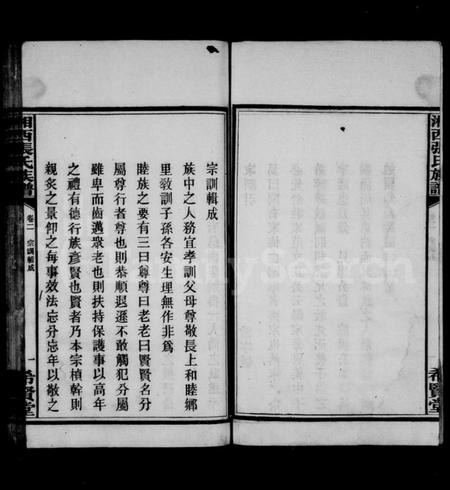 湘西張氏族譜
希賢堂
宗訓輯成
族中之人務宜孝訓父母尊敬長上和睦鄉
里敎訓子孫各安生理無作非爲
睦族之要有三曰尊尊曰老老曰賢賢名分
屬尊行者尊也則恭順退遜不敢觸犯分屬
雖卑而齒邁衆老也則扶持保護事以高年
之禮有德行族彥賢也賢者乃本宗楨幹則
親炙之景仰之每事效法忘分忘年以敬之
湘西張氏族譜 卷二 宗訓輯成 一 希賢堂
MySearch